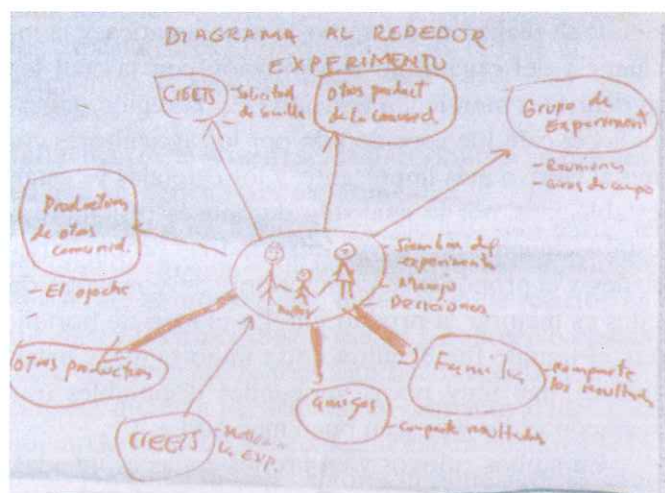 DIAGRAMA AL REDEDOR
EXPERIMENTO
CIEETS
- Solicitud
de Semilla
Otros product
de la comunid
Grupo de
Experiment
- Reuniones
- Giras de campo
Productores
de otras
comunid.
- El ojoche
- Siembra del
experimento
- Manejo
Decisiones
Otros productores
CIEETS
la Exp.
amigos
- comparte resultados
Familia
- comparte
los resultados